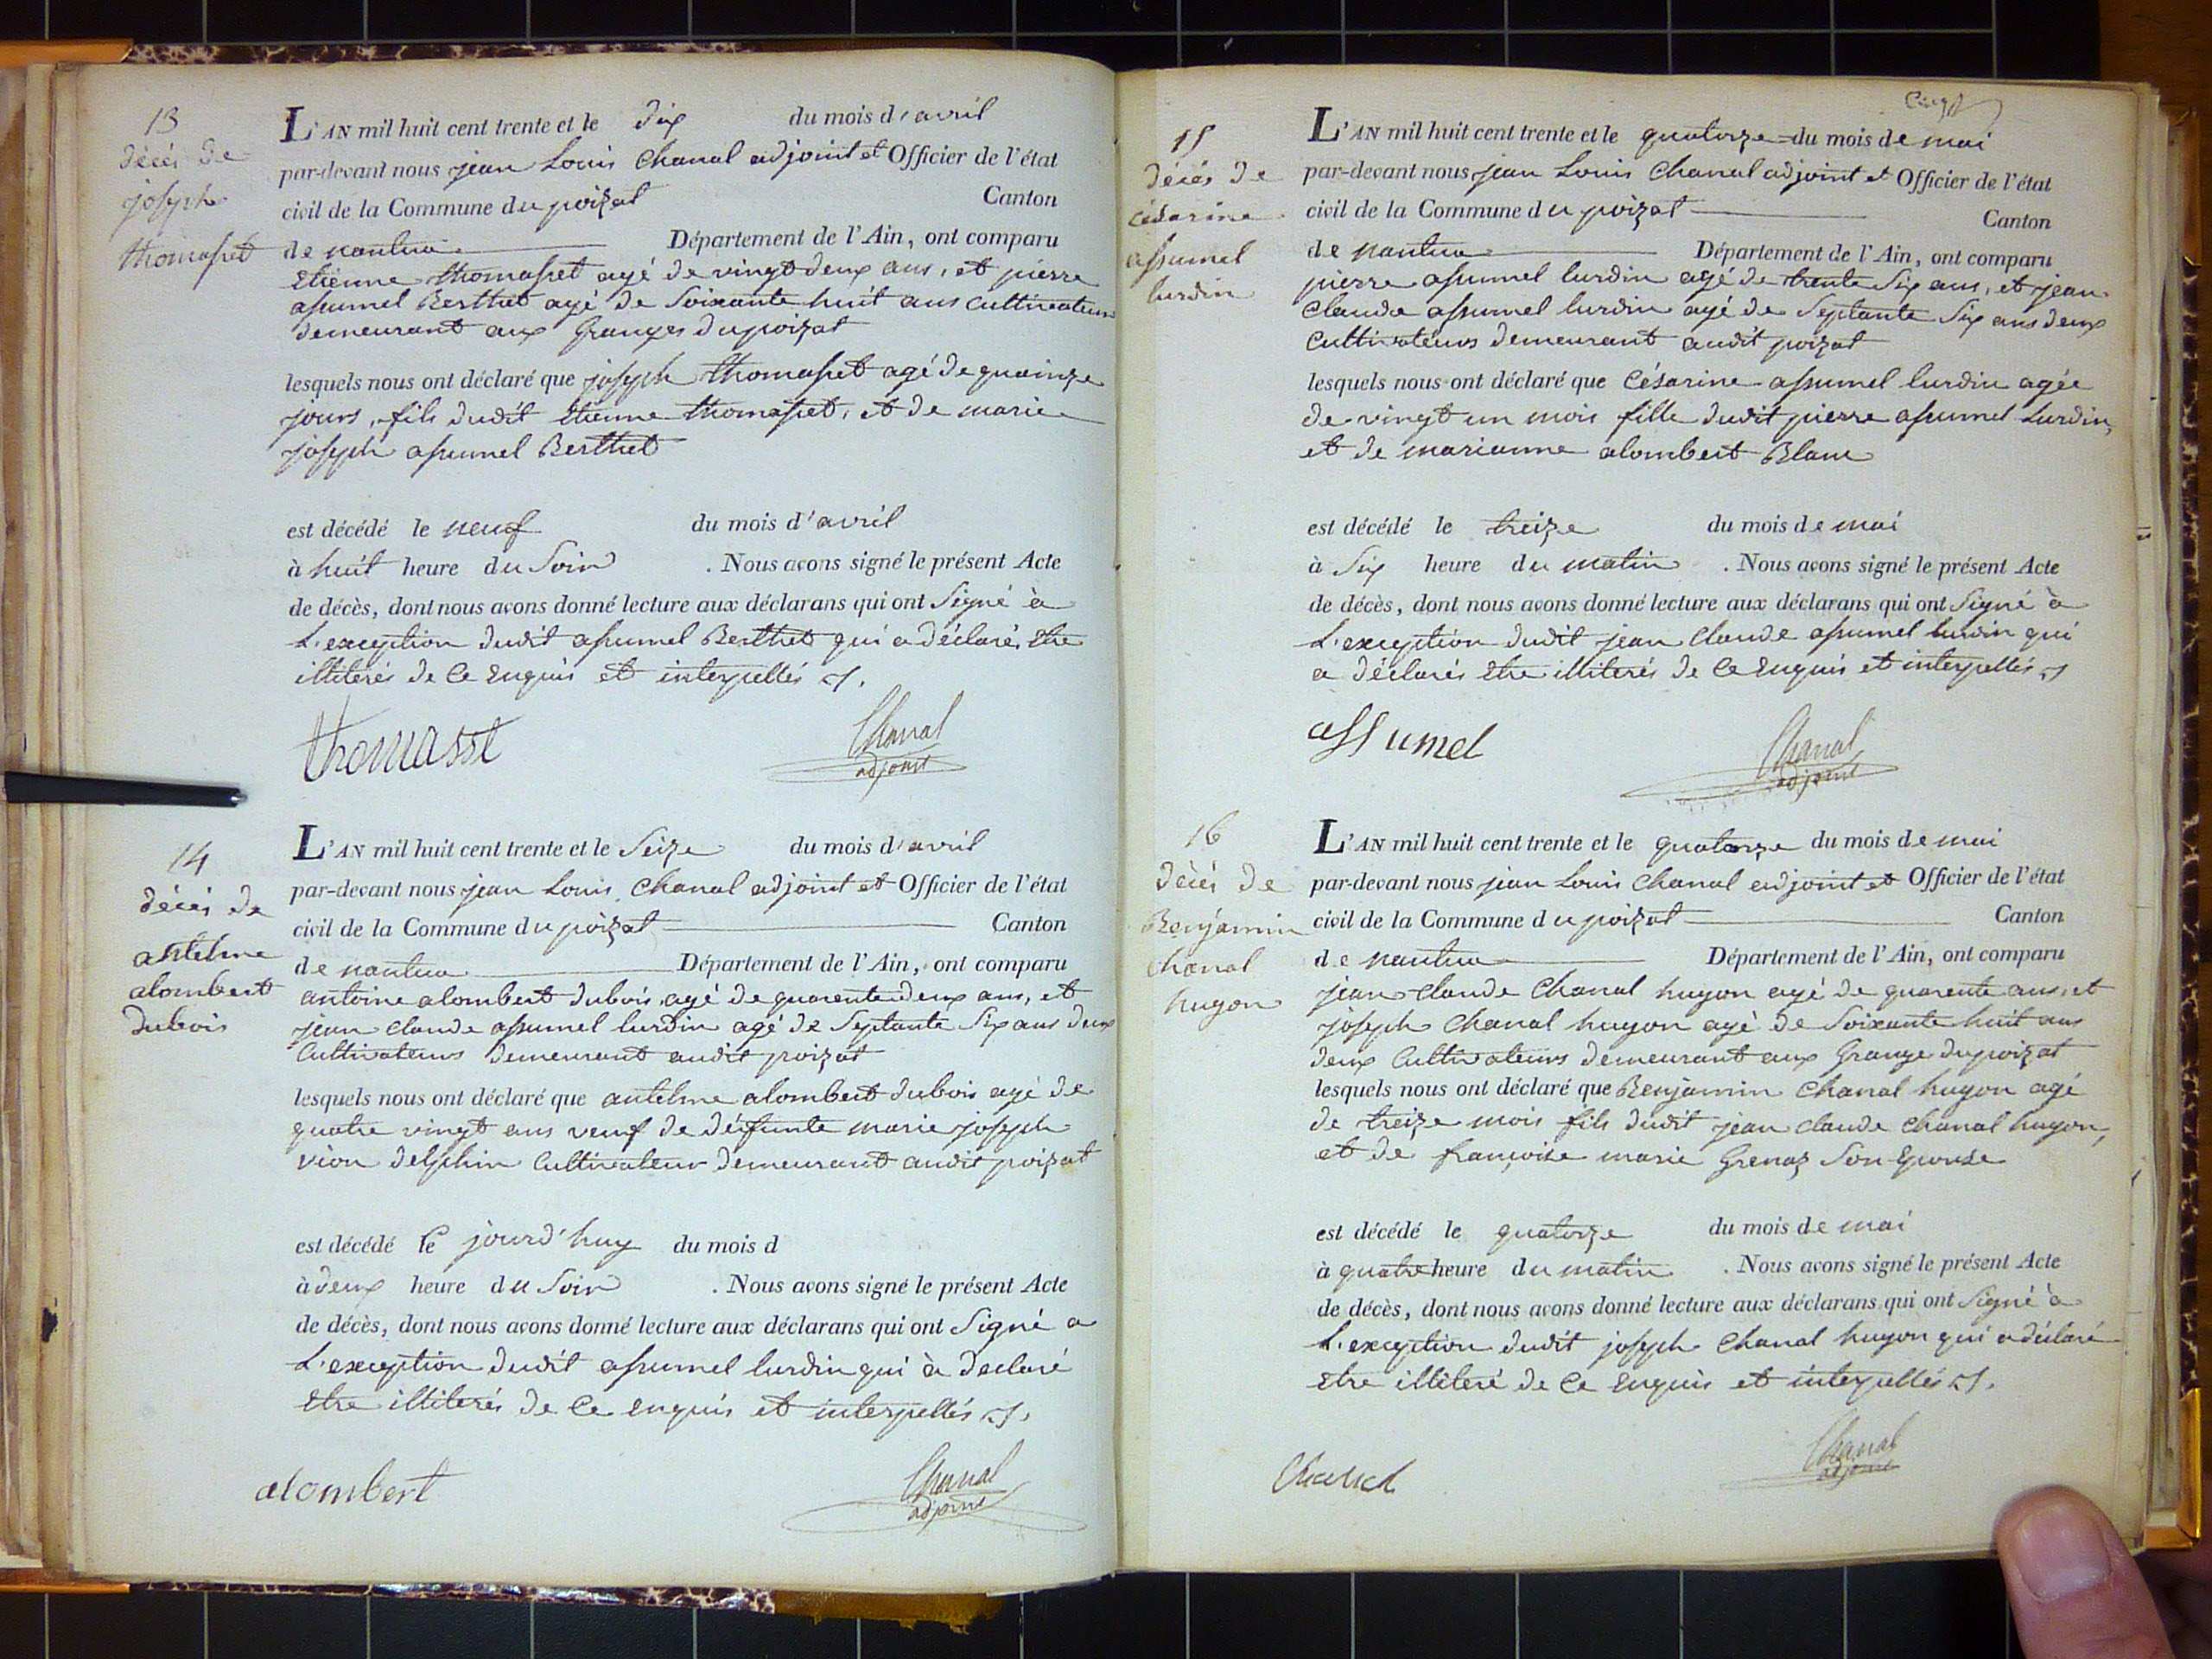 13
décés de
joseph
thomasset
L'AN mil huit cent trente et le dix du mois d'avril
par-devant nous jean Louis Chanal adjoint et Officier de l'état
civil de la Commune du poizat Canton
de nantua Département de l'Ain, ont comparu
Etienne thomasset agé de vingt deux ans, et pierre
assumel Berthet agé de Soixante huit ans cultivateurs
demeurant aux Granges du poizat
lesquels nous ont déclaré que joseph thomasset agé de quainze
jours, fils dudit Etienne thomasset, et de marie
joseph assumel Berthet
est décédé le neuf du mois d'avril
à huit heure du Soir . Nous avons signé le présent Acte
de décès, dont nous avons donné lecture aux déclarans qui ont Signé à
L'exception dudit assumel Berthet qui a déclaré Etre
illiterés de Ce Enquis et interpellés
thomasst
Chanal
adjoint
14
décés de
antelme
alombert
dubois
L'AN mil huit cent trente et le Seize du mois d'avril
par-devant nous jean Louis Chanal adjoint et Officier de l'état
civil de la Commune du poizat Canton
de nantua Département de l'Ain, ont comparu
antoine alombert dubois, agé de quarente deux ans, et
jean claude assumel lurdin agé de Septante Six ans deux
Cultivateurs demeurant audit poizat
lesquels nous ont déclaré que antelme alombert dubois agé de
quatre vingt ans veuf de défunte marie joseph
vion delphin Cultivateur demeurant audit poizat
est décédé le jourd'huy du mois d
à deux heure du Soir . Nous avons signé le présent Acte
de décès, dont nous avons donné lecture aux déclarans qui ont Signé a
L'exception dudit assumel lurdin qui à declaré
Etre illiterés de Ce enquis et interpellés
alombert
Chanal
adjoint
15
décés de
césarine
assumel
lurdin
L'AN mil huit cent trente et le quatorze du mois de mai
par-devant nous jean Louis Chanal adjoint et Officier de l'état
civil de la Commune du poizat Canton
de nantua Département de l'Ain, ont comparu
pierre assumel lurdin agé de trente Six ans, et jean
Claude assumel lurdin agé de Septante Six ans deux
Cultivateurs demeurant audit poizat
lesquels nous ont déclaré que Césarine assumel lurdin agée
de vingt un mois fille dudit pierre assumel Lurdin,
et de marianne alombert Blanc
est décédé le treize du mois de mai
à Six heure du matin . Nous avons signé le présent Acte
de décès, dont nous avons donné lecture aux déclarans qui ont Signé à
L'exception dudit jean Claude assumel lurdin qui
a déclarés Etre illiterés de Ce Enquis et interpellés
assumel
Chanal
adjoint
16
décés de
Benjamin
Chanal
hugon
L'AN mil huit cent trente et le quatorze du mois de mai
par-devant nous jean Louis Chanal adjoint et Officier de l'état
civil de la Commune du poizat Canton
de nantua Département de l'Ain, ont comparu
jean claude Chanal hugon agé de quarente ans, et
joseph Chanal hugon agé de Soixante huit ans
deux Cultivateurs demeurant aux Grange du poizat
lesquels nous ont déclaré que Benjamin Chanal hugon agé
de treize mois fils dudit jean claude Chanal hugon,
et de françoise marie Grenaz Son Epouse
est décédé le quatorze du mois de mai
à quatre heure du matin . Nous avons signé le présent Acte
de décès, dont nous avons donné lecture aux déclarans qui ont Signé à
L'exception dudit joseph Chanal hugon qui a déclaré
Etre illiteré de Ce Enquis et interpellés
Chanal
Chanal
adjoint